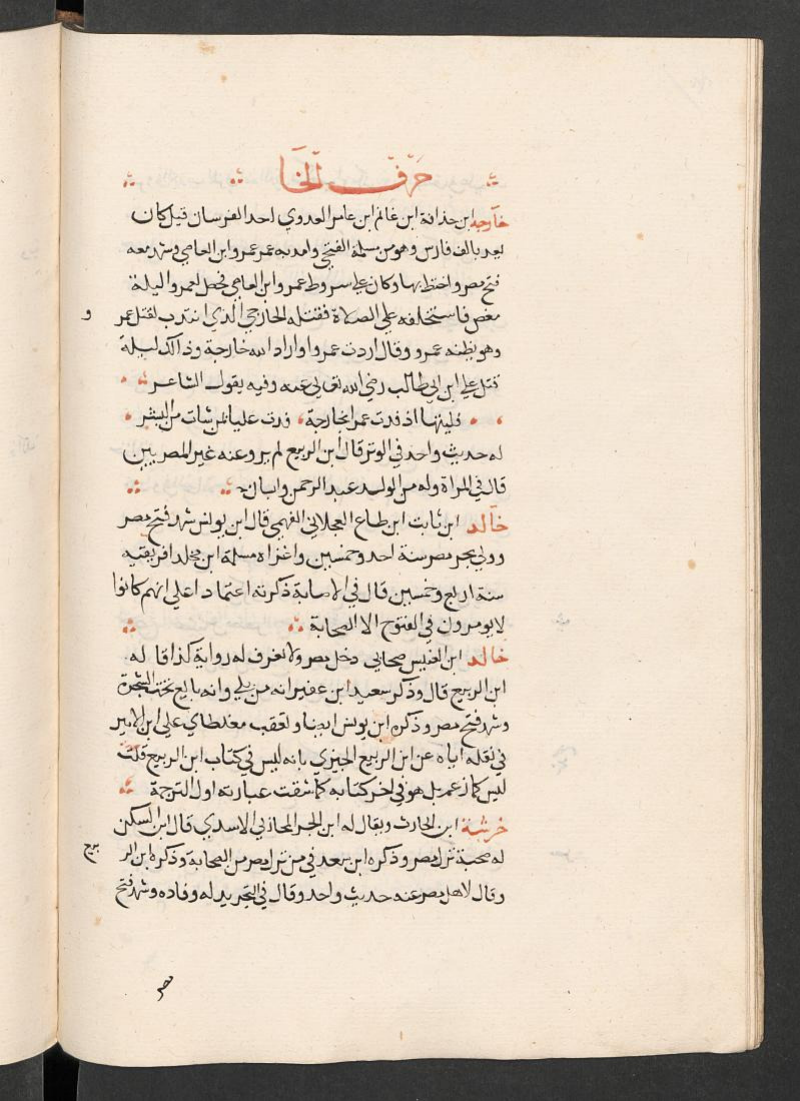 حرف الخا
خارجة ابن حذافة ابن غانم ابن عامر العدوي احد الفرسان قيل كان
يعد بالف فارس وهو من مسلمة الفتح وامد به عمر عمرو ابن العاصي وشهد معه
فتح مصر واختط بها وكان علي شروط عمرو ابن العاصي فحصل لعمرو اليلة
مغص فاستخلفه علي الصلاة فقتله الخارجي الذي انتدب لقتل عمر
و
وهو يظنه عمرو وقال اردت عمروا واراد الله خارجة وذالك ليلة
قتل علي ابن ابي طالب رضي الله تعالي عنه وفيه يقول الشاعر
فليتها اذ فدت عمرا بخارجة فدت عليا بمن شات من البشر
له حديث واحد في الوتر قال ابن الربيع لم يروعنه غير المصريين
قال في المراة وله من الولد عبد الرحمن وابان
خالد ابن ثابت ابن طاع العجلاني الفهمي قال ابن يونس شهد فتح مصر
وولي بحر مصر سنة احد وخمسين واغزاه مسلمة ابن مخلد افريقيه
سنة اربع وخمسين قال في الاصابة ذكرته اعتمادا علي انهم كانوا
لا يومرون في الفتوح الا الصحابة
خالد ابن العنبس صحابي دخل مصر ولا نعرف له رواية كذا قا له
ابن الربيع قال وذكر سعيد ابن عفير انه من بلي وانه بايع تحت الشجرة
وشهد فتح مصر وذكره ابن يونس ايضا وتعقب مغلطاي علي ابن الاثير
في نقله اياه عن ابن الربيع الجيزي بانه ليس في كتاب ابن الربيع قلت
ليس كما زعم بل هو في اخر كتابه كما سقت عبارته اول الترجمة
خرشة ابن الحارث ويقال له ابن الحر المحازبي الاسدي قال ابن السكن
له صحبة نزل مصر وذكره ابن سعد في من نزل مصر من الصحابة وذكره ابن الر
بيع
وقال لاهل مصر عنه حديث واحد وقال في التجريد له وفاده وشهد فتح
مصر